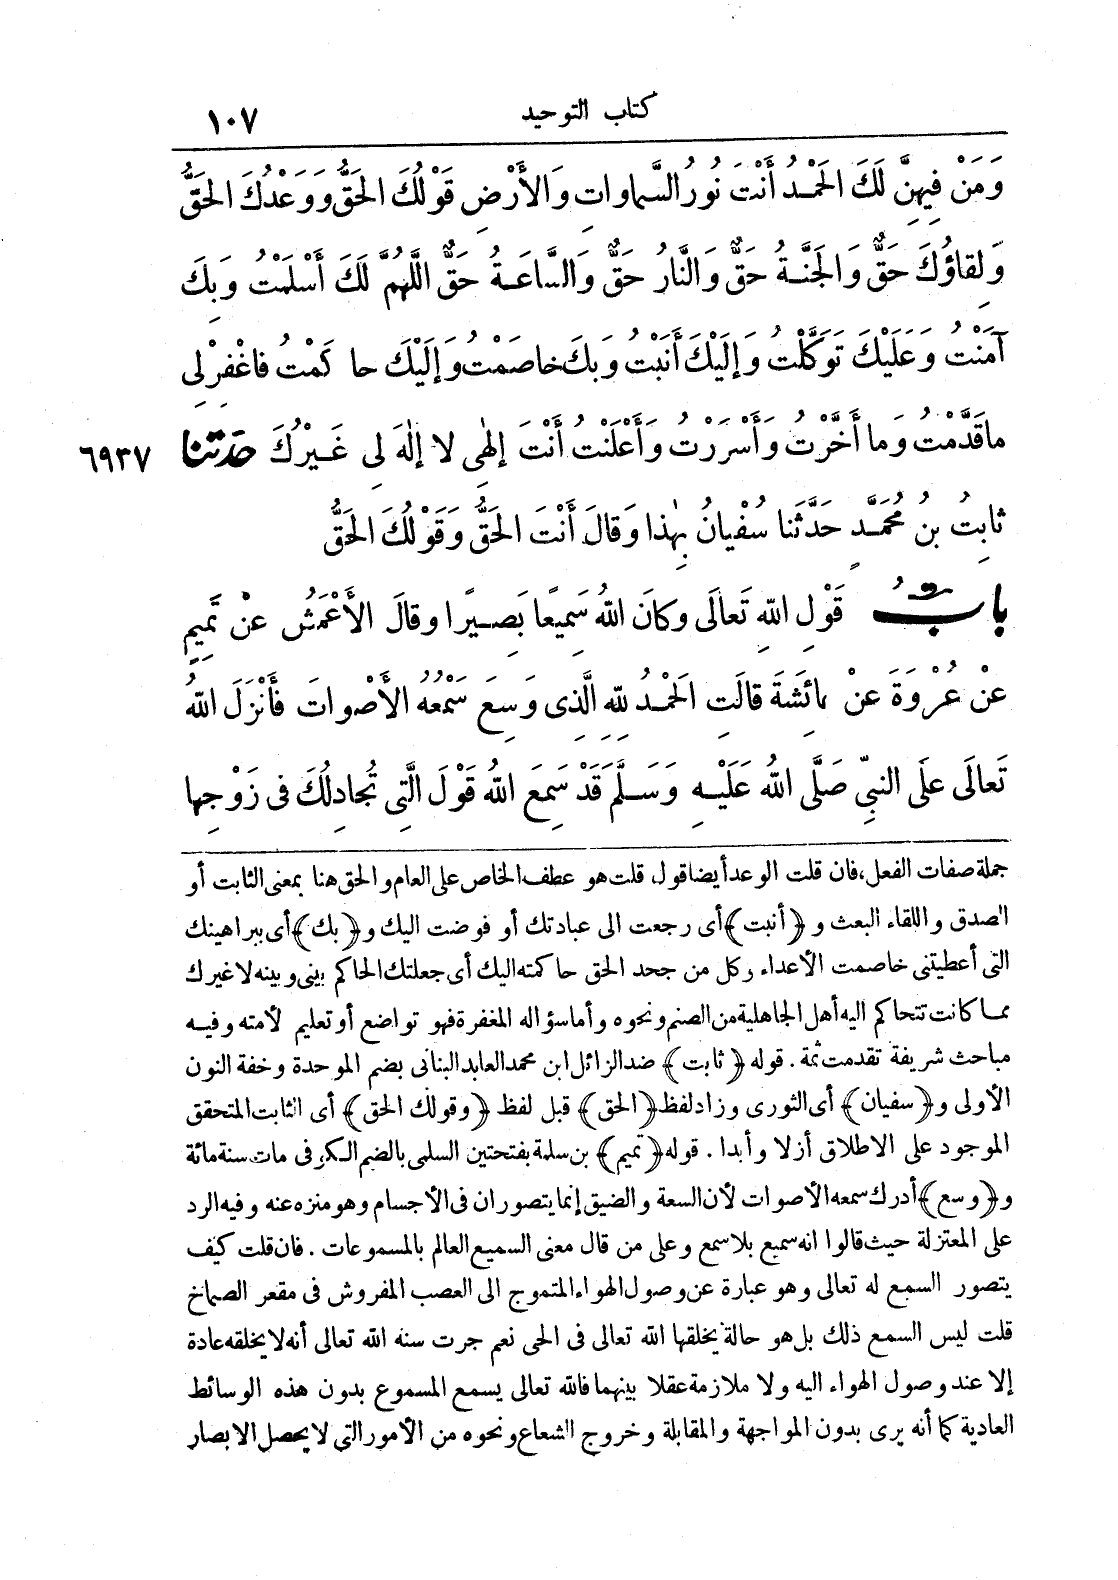 كتاب التوحيد ١٠٧
وَمَنْ فِيهِنَّ لَكَ الْحَمْدُ أَنْتَ نُورُ السَّماواتِ وَالأَرْضِ قَوْلُكَ الحَقُّ وَوَعْدُكَ الحَقُّ
وَلِقاؤُكَ حَقٌّ وَالجَنَّةُ حَقٌّ وَالنَّارُ حَقٌّ وَالسَّاعَةُ حَقٌّ اللَّهُمَّ لَكَ أَسْلَمْتُ وَبِكَ
آمَنْتُ وَعَلَيْكَ تَوَكَّلْتُ وَإِلَيْكَ أَنَبْتُ وَبِكَ خاصَمْتُ وَإِلَيْكَ حاكَمْتُ فاغْفِرْ لِى
ماقَدَّمْتُ وَما أَخَّرْتُ وَأَسْرَرْتُ وَأَعْلَنْتُ أَنْتَ إِلٰهِى لا إِلٰهَ لِى غَيْرُكَ حدثنا ٦٩٣٧
ثابِتُ بنُ مُحَمَّدٍ حَدَّثَنا سُفْيانُ بِهٰذا وَقالَ أَنْتَ الحَقُّ وَقَوْلُكَ الحَقُّ
بابُ قَوْلِ اللهِ تَعالَى وكانَ اللهُ سَمِيعًا بَصِيرًا وقالَ الأَعْمَشُ عنْ تَمِيمٍ
عَنْ عُرْوَةَ عنْ عائِشَةَ قالَتِ الحَمْدُ لِلّهِ الَّذِى وَسِعَ سَمْعُهُ الأَصْواتَ فَأَنْزَلَ اللهُ
تَعالَى علَى النبيِّ صَلَّى اللهُ عَلَيْهِ وَسَلَّمَ قَدْ سَمِعَ اللهُ قَوْلَ الَّتِى تُجادِلُكَ فى زَوْجِها
جملة صفات الفعل، فان قلت الوعد أيضا قول، قلت هو عطف الخاص على العام والحق هنا بمعنى الثابت أو
الصدق واللقاء البعث و﴿أنبت﴾ أى رجعت الى عبادتك أو فوضت اليك و﴿بك﴾ أى ببراهينك
التى أعطيتنى خاصمت الأعداء وكل من جحد الحق حاكمته اليك أى جعلتك الحاكم بينى وبينه لا غيرك
مما كانت تتحاكم اليه أهل الجاهلية من الصنم ونحوه وأما سؤاله المغفرة فهو تواضع أو تعليم لأمته وفيه
مباحث شريفة تقدمت ثمة. قوله ﴿ثابت﴾ ضد الزائل ابن محمد العابد البنانى بضم الموحدة وخفة النون
الأولى و﴿سفيان﴾ أى الثورى وزاد لفظ ﴿الحق﴾ قبل لفظ ﴿وقولك الحق﴾ أى الثابت المتحقق
الموجود على الاطلاق أزلا وأبدا. قوله ﴿تميم﴾ بن سلمة بفتحتين السلمى بالضم الكوفى مات سنة مائة
و﴿وسع﴾ أدرك سمعه الأصوات لأن السعة والضيق إنما يتصوران فى الأجسام وهو منزه عنه وفيه الرد
على المعتزلة حيث قالوا انه سميع بلا سمع وعلى من قال معنى السميع العالم بالمسموعات. فان قلت كيف
يتصور السمع له تعالى وهو عبارة عن وصول الهواء المتموج الى العصب المفروش فى مقعر الصماخ
قلت ليس السمع ذلك بل هو حالة يخلقها الله تعالى فى الحى نعم جرت سنه الله تعالى أنه لا يخلقه عادة
إلا عند وصول الهواء اليه ولا ملازمة عقلا بينهما فالله تعالى يسمع المسموع بدون هذه الوسائط
العادية كما أنه يرى بدون المواجهة والمقابلة وخروج الشعاع ونحوه من الأمور التى لا يحصل الابصار